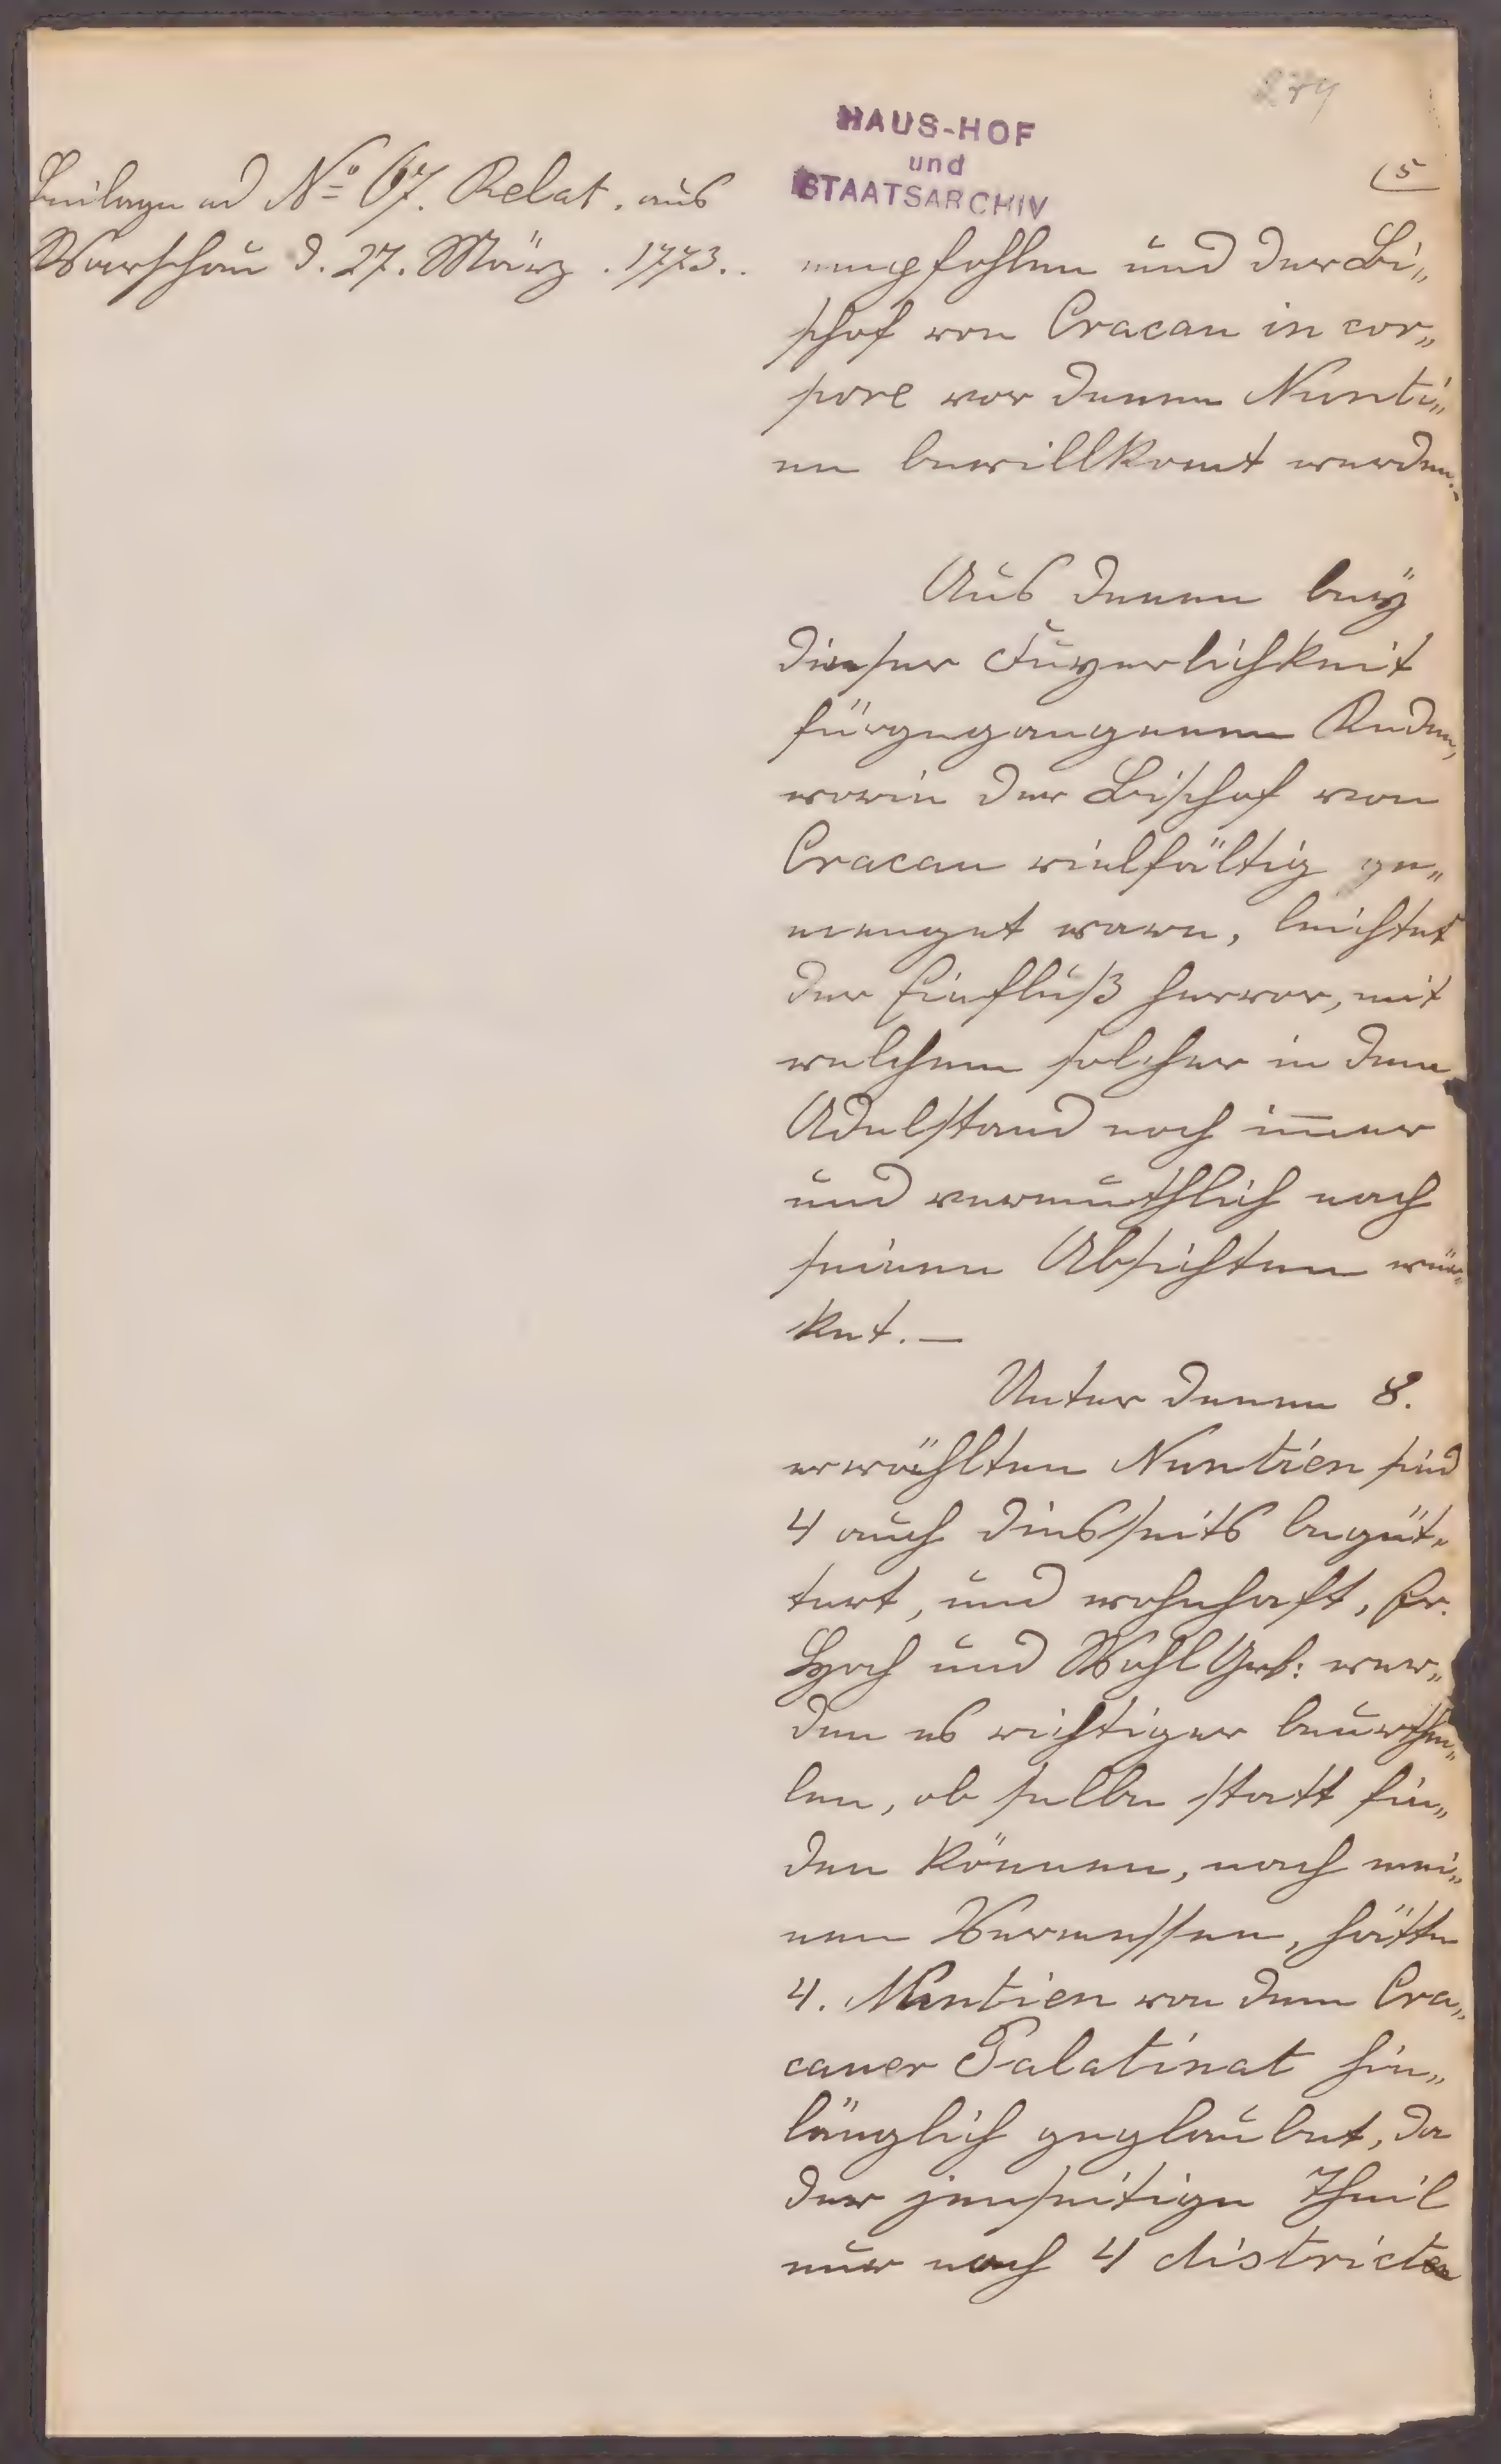 279
HAUS-HOF
und
STAATSARCHIV
(5
Beilage ad N° 67. Relat. aus
Warschau d. 27. März. 1773..
empfohlen und der Bi„
schof von Cracau in cor„
pore vor denen Nunti„
en bewillkomt werden.-
Aus denen beÿ
dieser Fuyerlichkeit
fürgegangenen Reden,
worin der Bischof von
Cracau vielfältig ge„
menget ware, leichtet
der Einfluß hervor, mit
welchem solcher in dem
Adelstand noch im̅er
und vermuthlich nach
seinen Absichten wür„
ket.—
Unter denen 8.
erwählten Nuntien sind
4 auch diesseits begüt„
tert, und wohnhaft, Er.
Hoch und WohlGeb: wer„
den es richtiger beurthei„
len, ob selbe statt fin„
den können, nach mei„
nem Vermessen, hätte
4. Nuntien von dem Cra„
cauer Palatinat hin„
länglich geglaubet, da
der jenseitige Theil
nur noch 4 districte